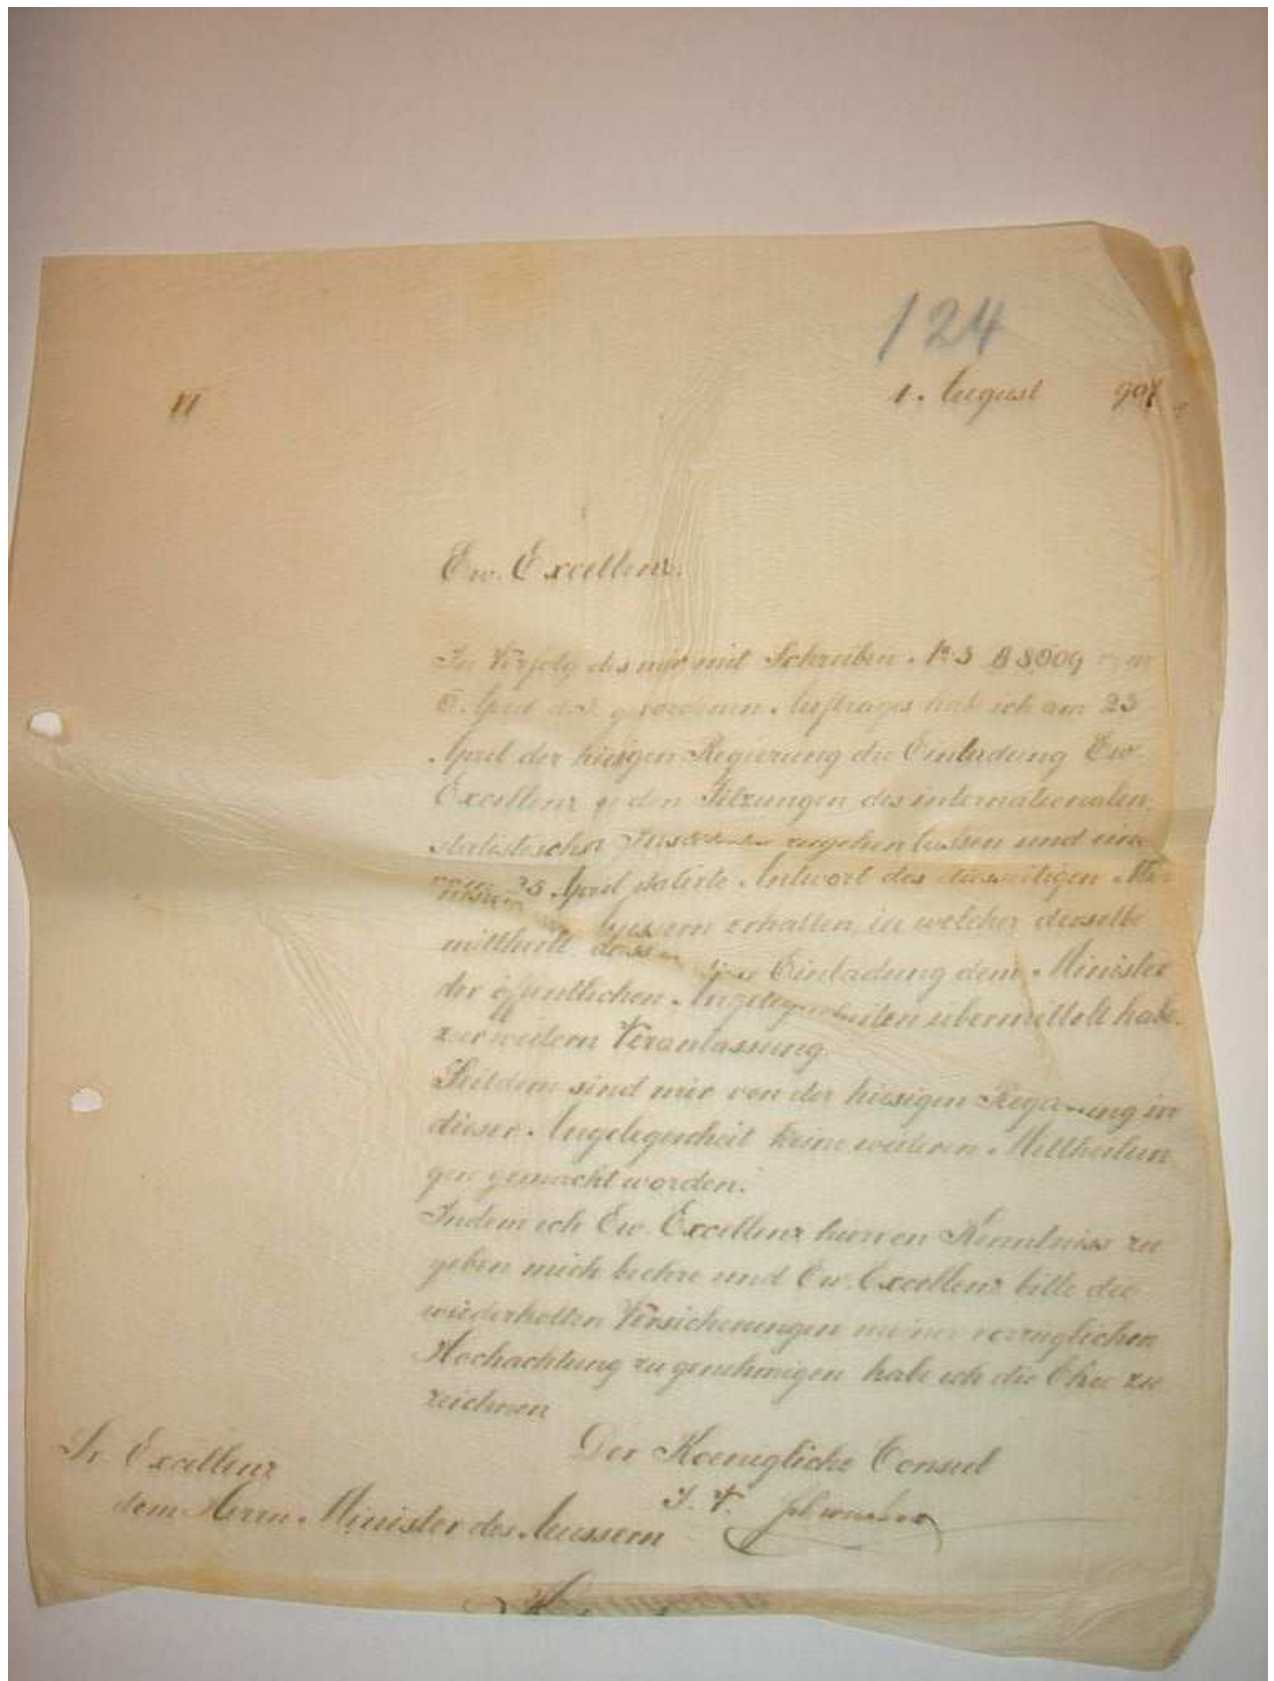 124
11 1. August 907
Ew. Excellenz.
In Verfolg des mir mit Schreiben No 3 B 8509
5. April d. J. gewordenen Auftrages habe ich am 23
April der hiesigen Regierung die Einladung Ew
Excellenz zu den Sitzungen des internationalen
statistischen zugehen lassen und eine
vom 25 April datirte Antwort des diesseitigen Mi-
erhalten, in welcher derselbe
mittheilt dass Einladung dem Minister
der öffentlichen Angelegenheiten übermittelt habe
zur weitern Veranlassung.
Seitdem sind mir von der hiesigen Regierung in
dieser Angelegenheit keine weiteren Mittheilun
gen gemacht worden.
Indem ich Ew. Excellenz Kenntniss zu
geben mich beehre und Ew. Excellenz bitte die
wiederholten Versicherungen meiner vorzüglichen
Hochachtung zu genehmigen habe ich die Ehre zu
zeichnen
Der Koenigliche Consul
I. V.
Sr Excellenz
dem Herrn Minister des Aeussern